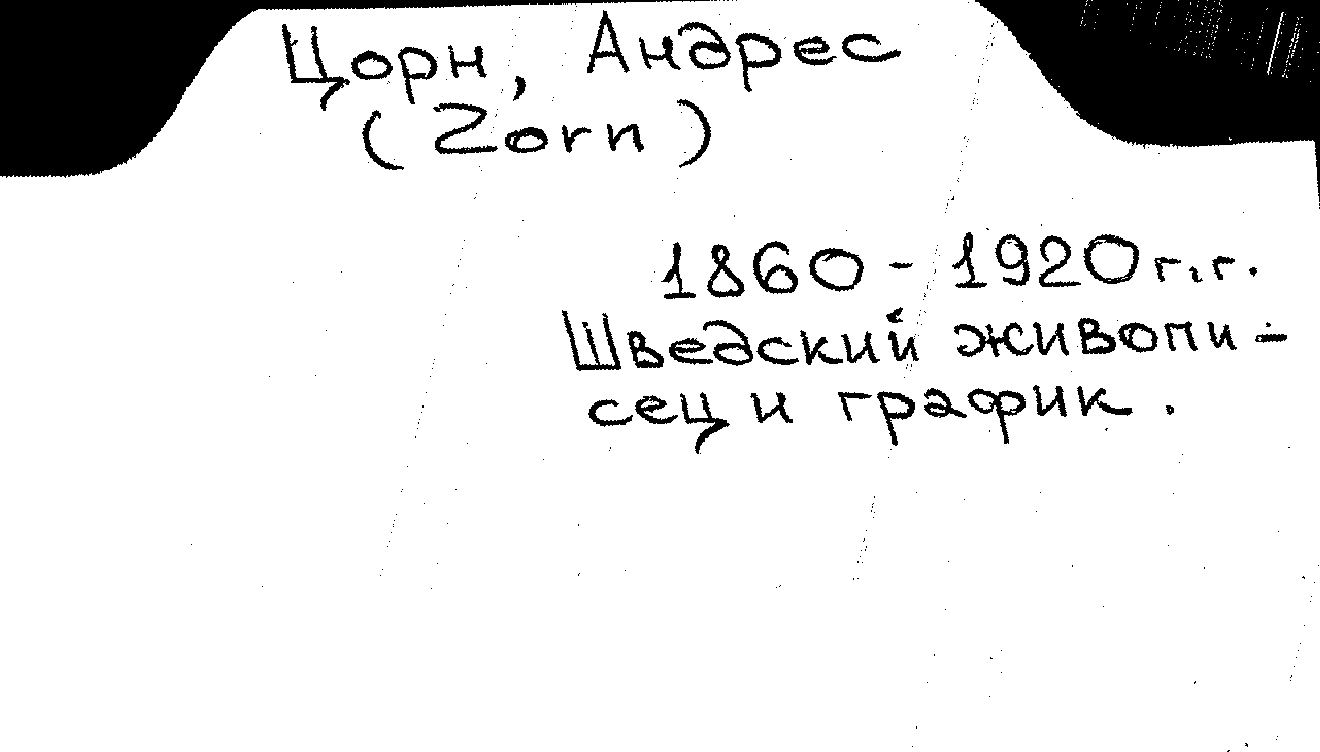 Цорн, Андрес
(Zorn)
1860 - 1920 г.г.
Шведский живопи-
сец и график.